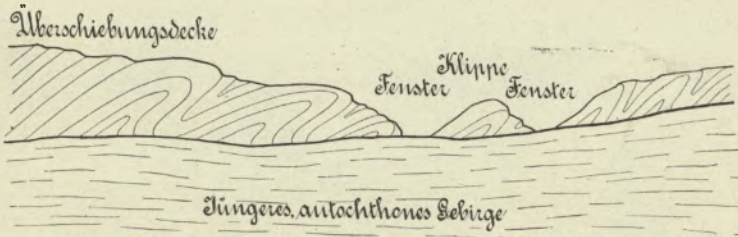 Überschiebungsdecke
Klippe
Fenster
Fenster
Jüngeres, autochthones Gebirge